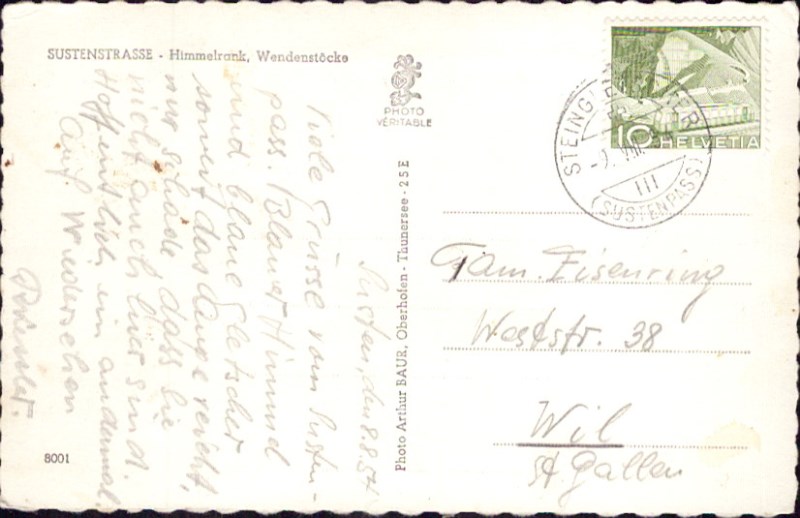 SUSTENSTRASSE - Himmelrank, Wendenstöcke
PHOTO
VÉRITABLE
Susten, den 8.8.54
Viele Grüsse vom Susten-
pass. Blauer Himmel
und blaue Gletscher
soweit das Auge reicht,
nur schade dass Sie
nicht auch hier sind.
Hoffentlich ein andermal
Auf Wiedersehen
8001
Photo Arthur BAUR, Oberhofen - Thunersee - 25 E
10 HELVETIA
III
(SUSTENPASS)
Fam. Eisenring
Weststr. 38
Wil
St Gallen